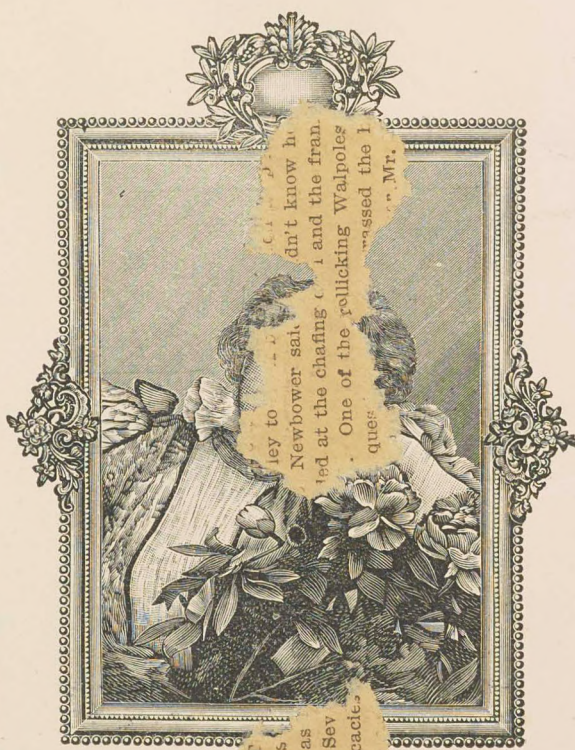 ley to
Newbower said dn't know h
led at the chafing and the fran
One of the rollicking Walpoles
ques assed the
Mr.
as
Sev
cacies